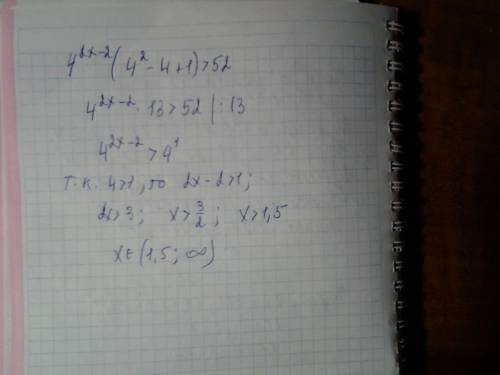 4^{2x-2}(4^2-4+1)>52
4^{2x-2}·13>52 |:13
4^{2x-2}>4^1
т.к. 4>1, то 2x-2>1;
2x>3; x>\frac{3}{2}; x>1,5
x∈(1,5; ∞)